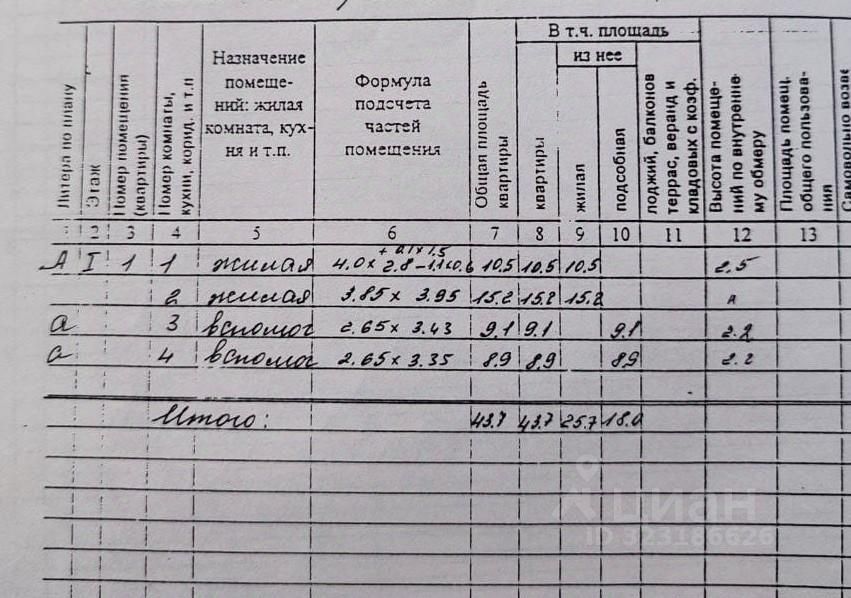 В т.ч. площадь
из нее
Литера по плану
Этаж
Номер помещения (квартиры)
Номер комнаты, кухни, корид. и т.п
Назначение помеще-
ний: жилая
комната, кух-
ня и т.п.
Формула
подсчета
частей
помещения
Общая площадь квартиры
квартиры
жилая
подсобная
лоджий, балконов террас, веранд и кладовых с коэф.
Высота помеще-
ний по внутренне-
му обмеру
Площадь помещ. общего пользова-
ния
Самовольно возве
1 2 3 4 5 6 7 8 9 10 11 12 13
+ 0.1 х 1.5
А I 1 1 жилая 4.0 х 2.8 – 1.1х0.6 10.5 10.5 10.5 2.5
2 жилая 3.85 х 3.95 15.2 15.2 15.2
а 3 вспомог 2.65 х 3.43 9.1 9.1 9.1 2.2
а 4 вспомог 2.65 х 3.35 8.9 8.9 8.9 2.2
Итого: 43.7 43.7 25.7 18.0
циан
ID 323186626